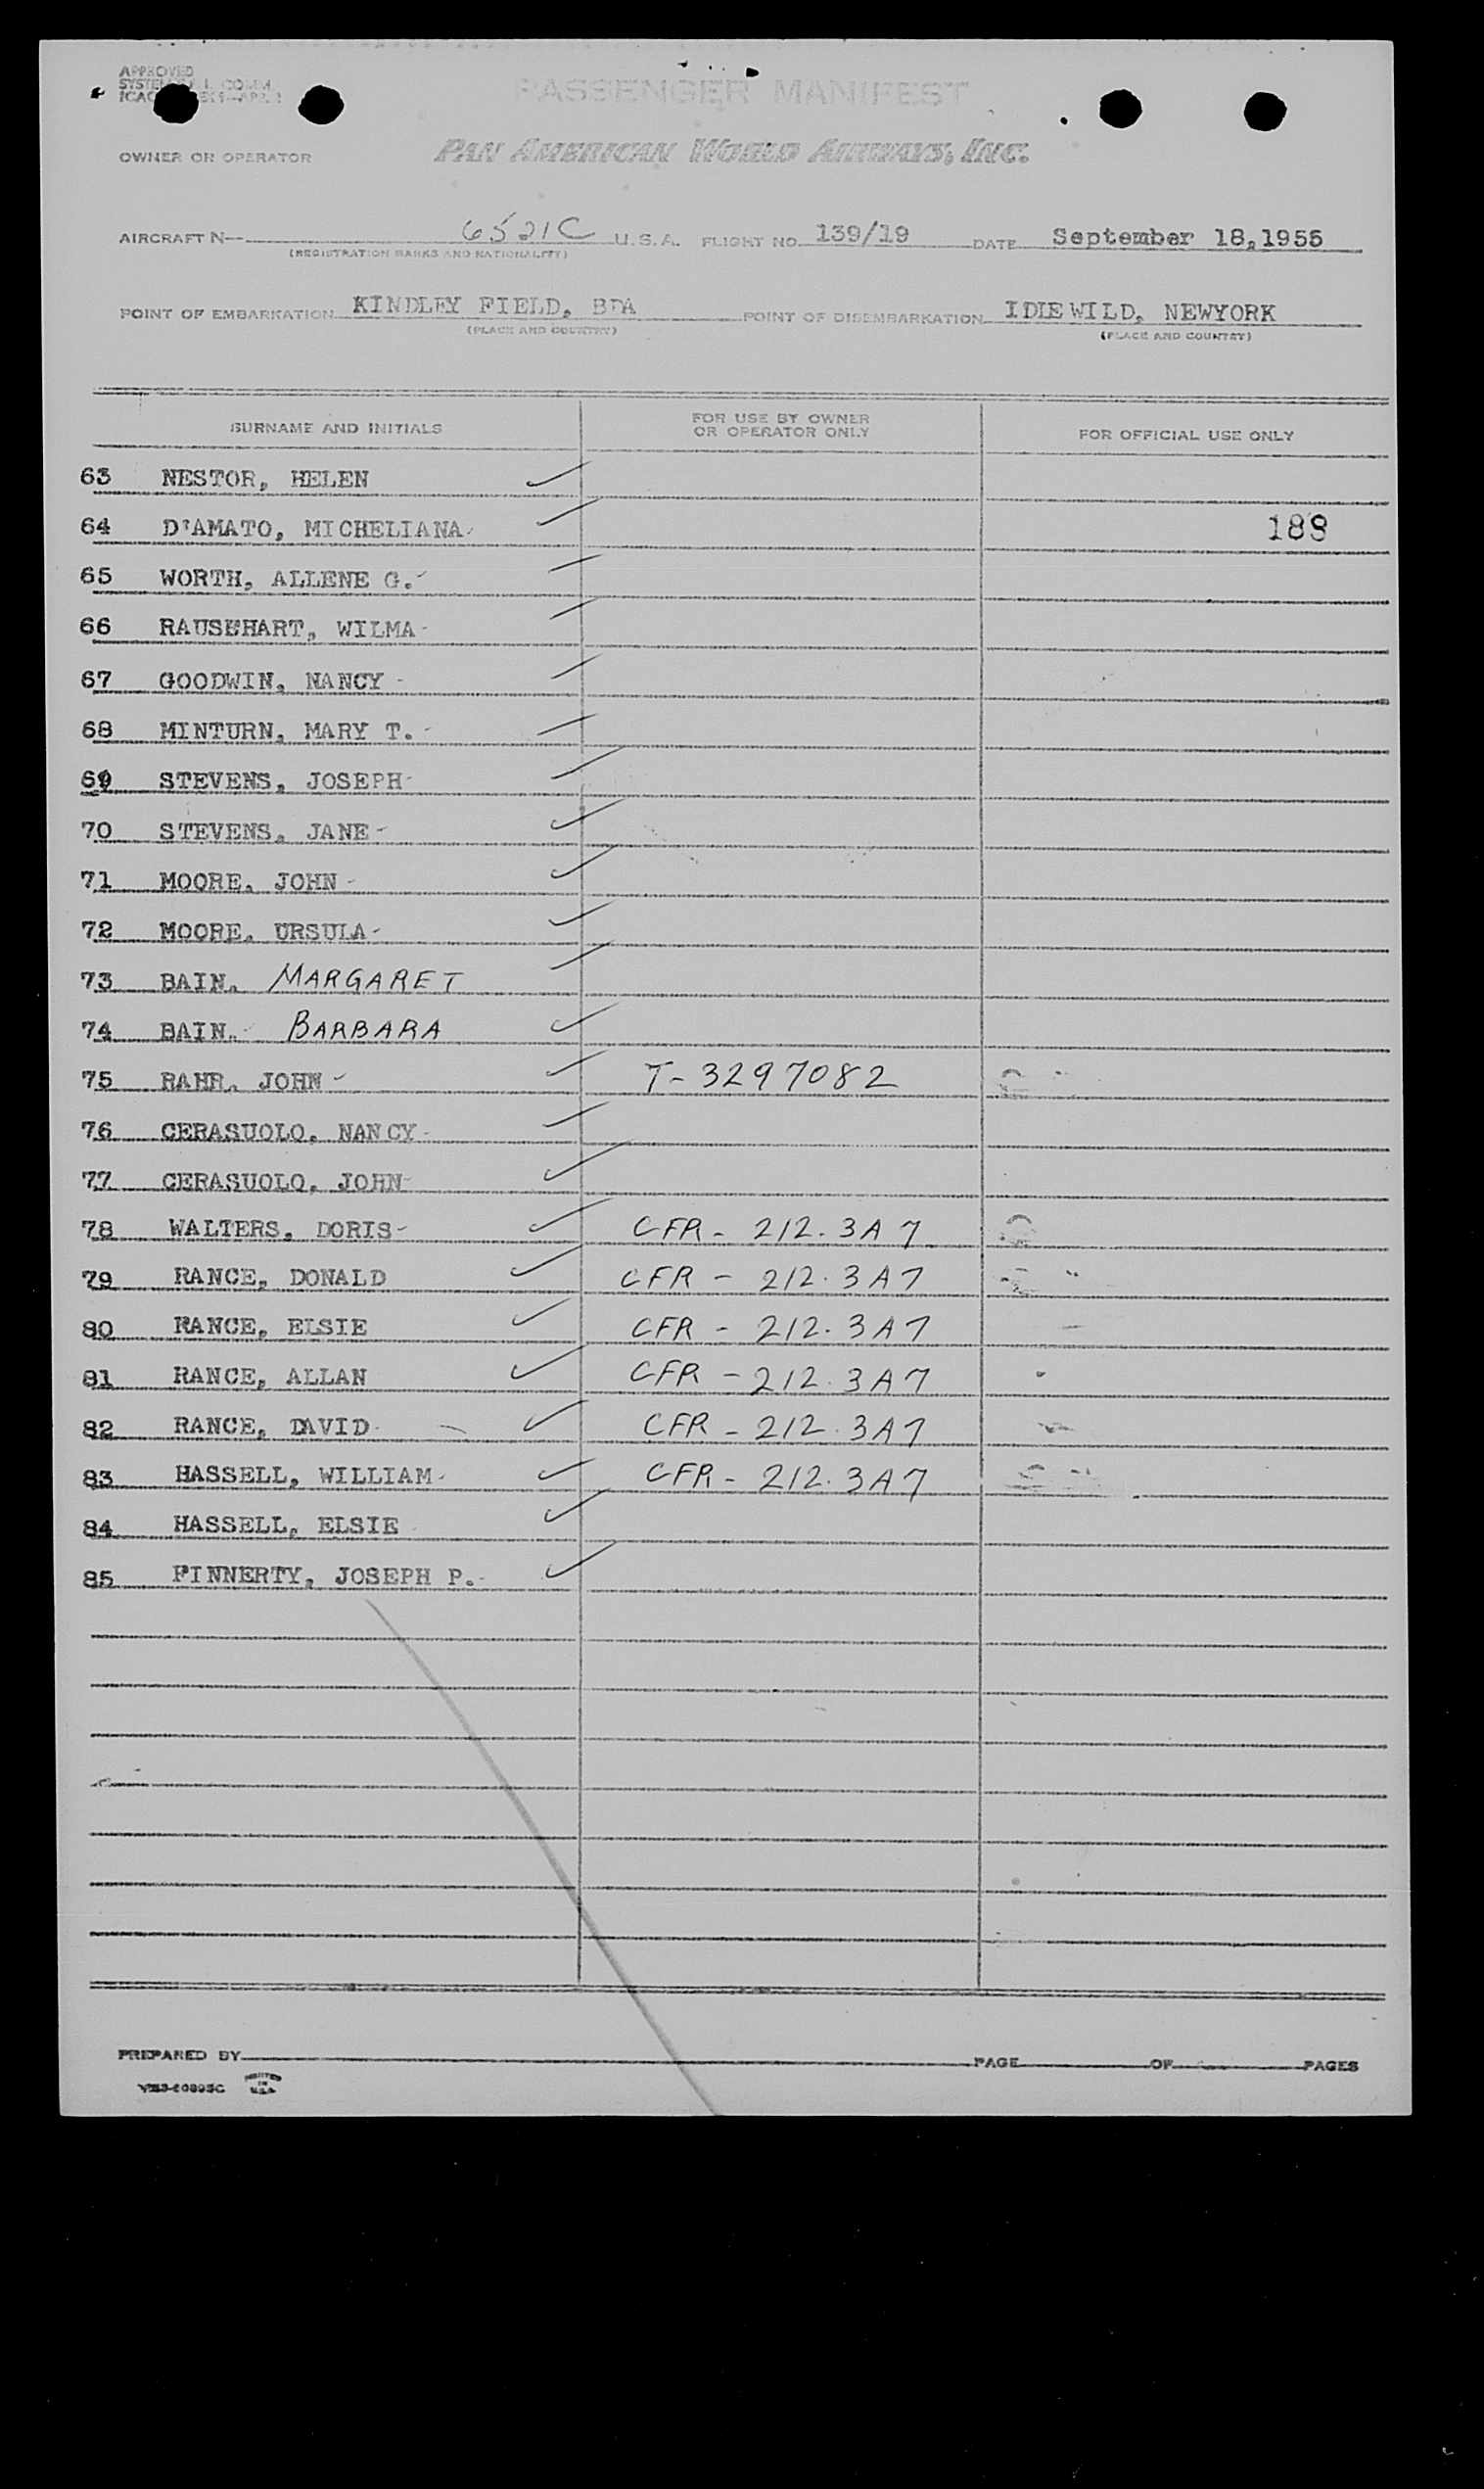 APPROVED
PASSENGER MANIFEST
OWNER OR OPERATOR PAN AMERICAN WORLD AIRWAYS, INC.
AIRCRAFT N— 6521C U.S.A. FLIGHT NO. 139/19 DATE September 18,1955
(REGISTRATION MARKS AND NATIONALITY)
POINT OF EMBARKATION KINDLEY FIELD, BDA POINT OF DISEMBARKATION IDLEWILD, NEWYORK
(PLACE AND COUNTRY) (PLACE AND COUNTRY)
SURNAME AND INITIALS FOR USE BY OWNER OR OPERATOR ONLY FOR OFFICIAL USE ONLY
63 NESTOR, HELEN
64 D'AMATO, MICHELIANA 188
65 WORTH, ALLENE G.
66 RAUSEHART, WILMA
67 GOODWIN, NANCY
68 MINTURN, MARY T.
69 STEVENS, JOSEPH
70 STEVENS, JANE
71 MOORE, JOHN
72 MOORE, URSULA
73 BAIN, MARGARET
74 BAIN, BARBARA
75 RAHR, JOHN T-3297082
76 CERASUOLO, NANCY
77 CERASUOLO, JOHN
78 WALTERS, DORIS CFR - 212.3A7
79 RANCE, DONALD CFR - 212.3A7
80 RANCE, ELSIE CFR - 212.3A7
81 RANCE, ALLAN CFR - 212.3A7
82 RANCE, DAVID CFR - 212.3A7
83 HASSELL, WILLIAM CFR - 212.3A7
84 HASSELL, ELSIE
85 FINNERTY, JOSEPH P.
PREPARED BY PAGE OF PAGES
PRINTED IN U.S.A.